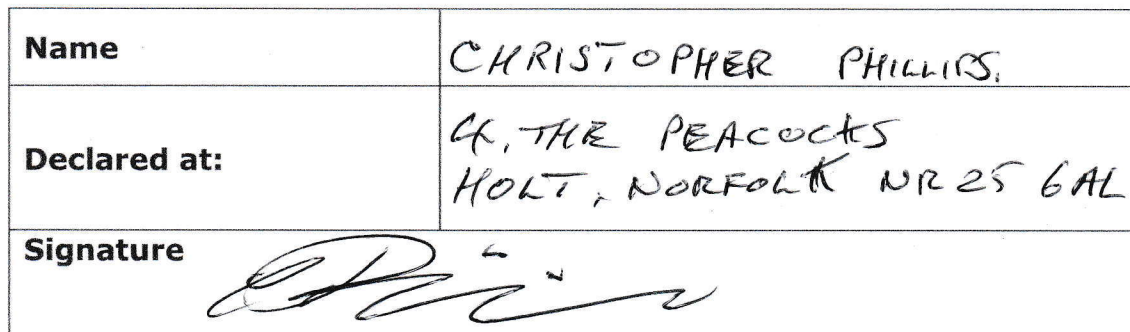 Name
CHRISTOPHER PHILLIPS.
Declared at:
4, THE PEACOCKS
HOLT, NORFOLK NR25 6AL
Signature